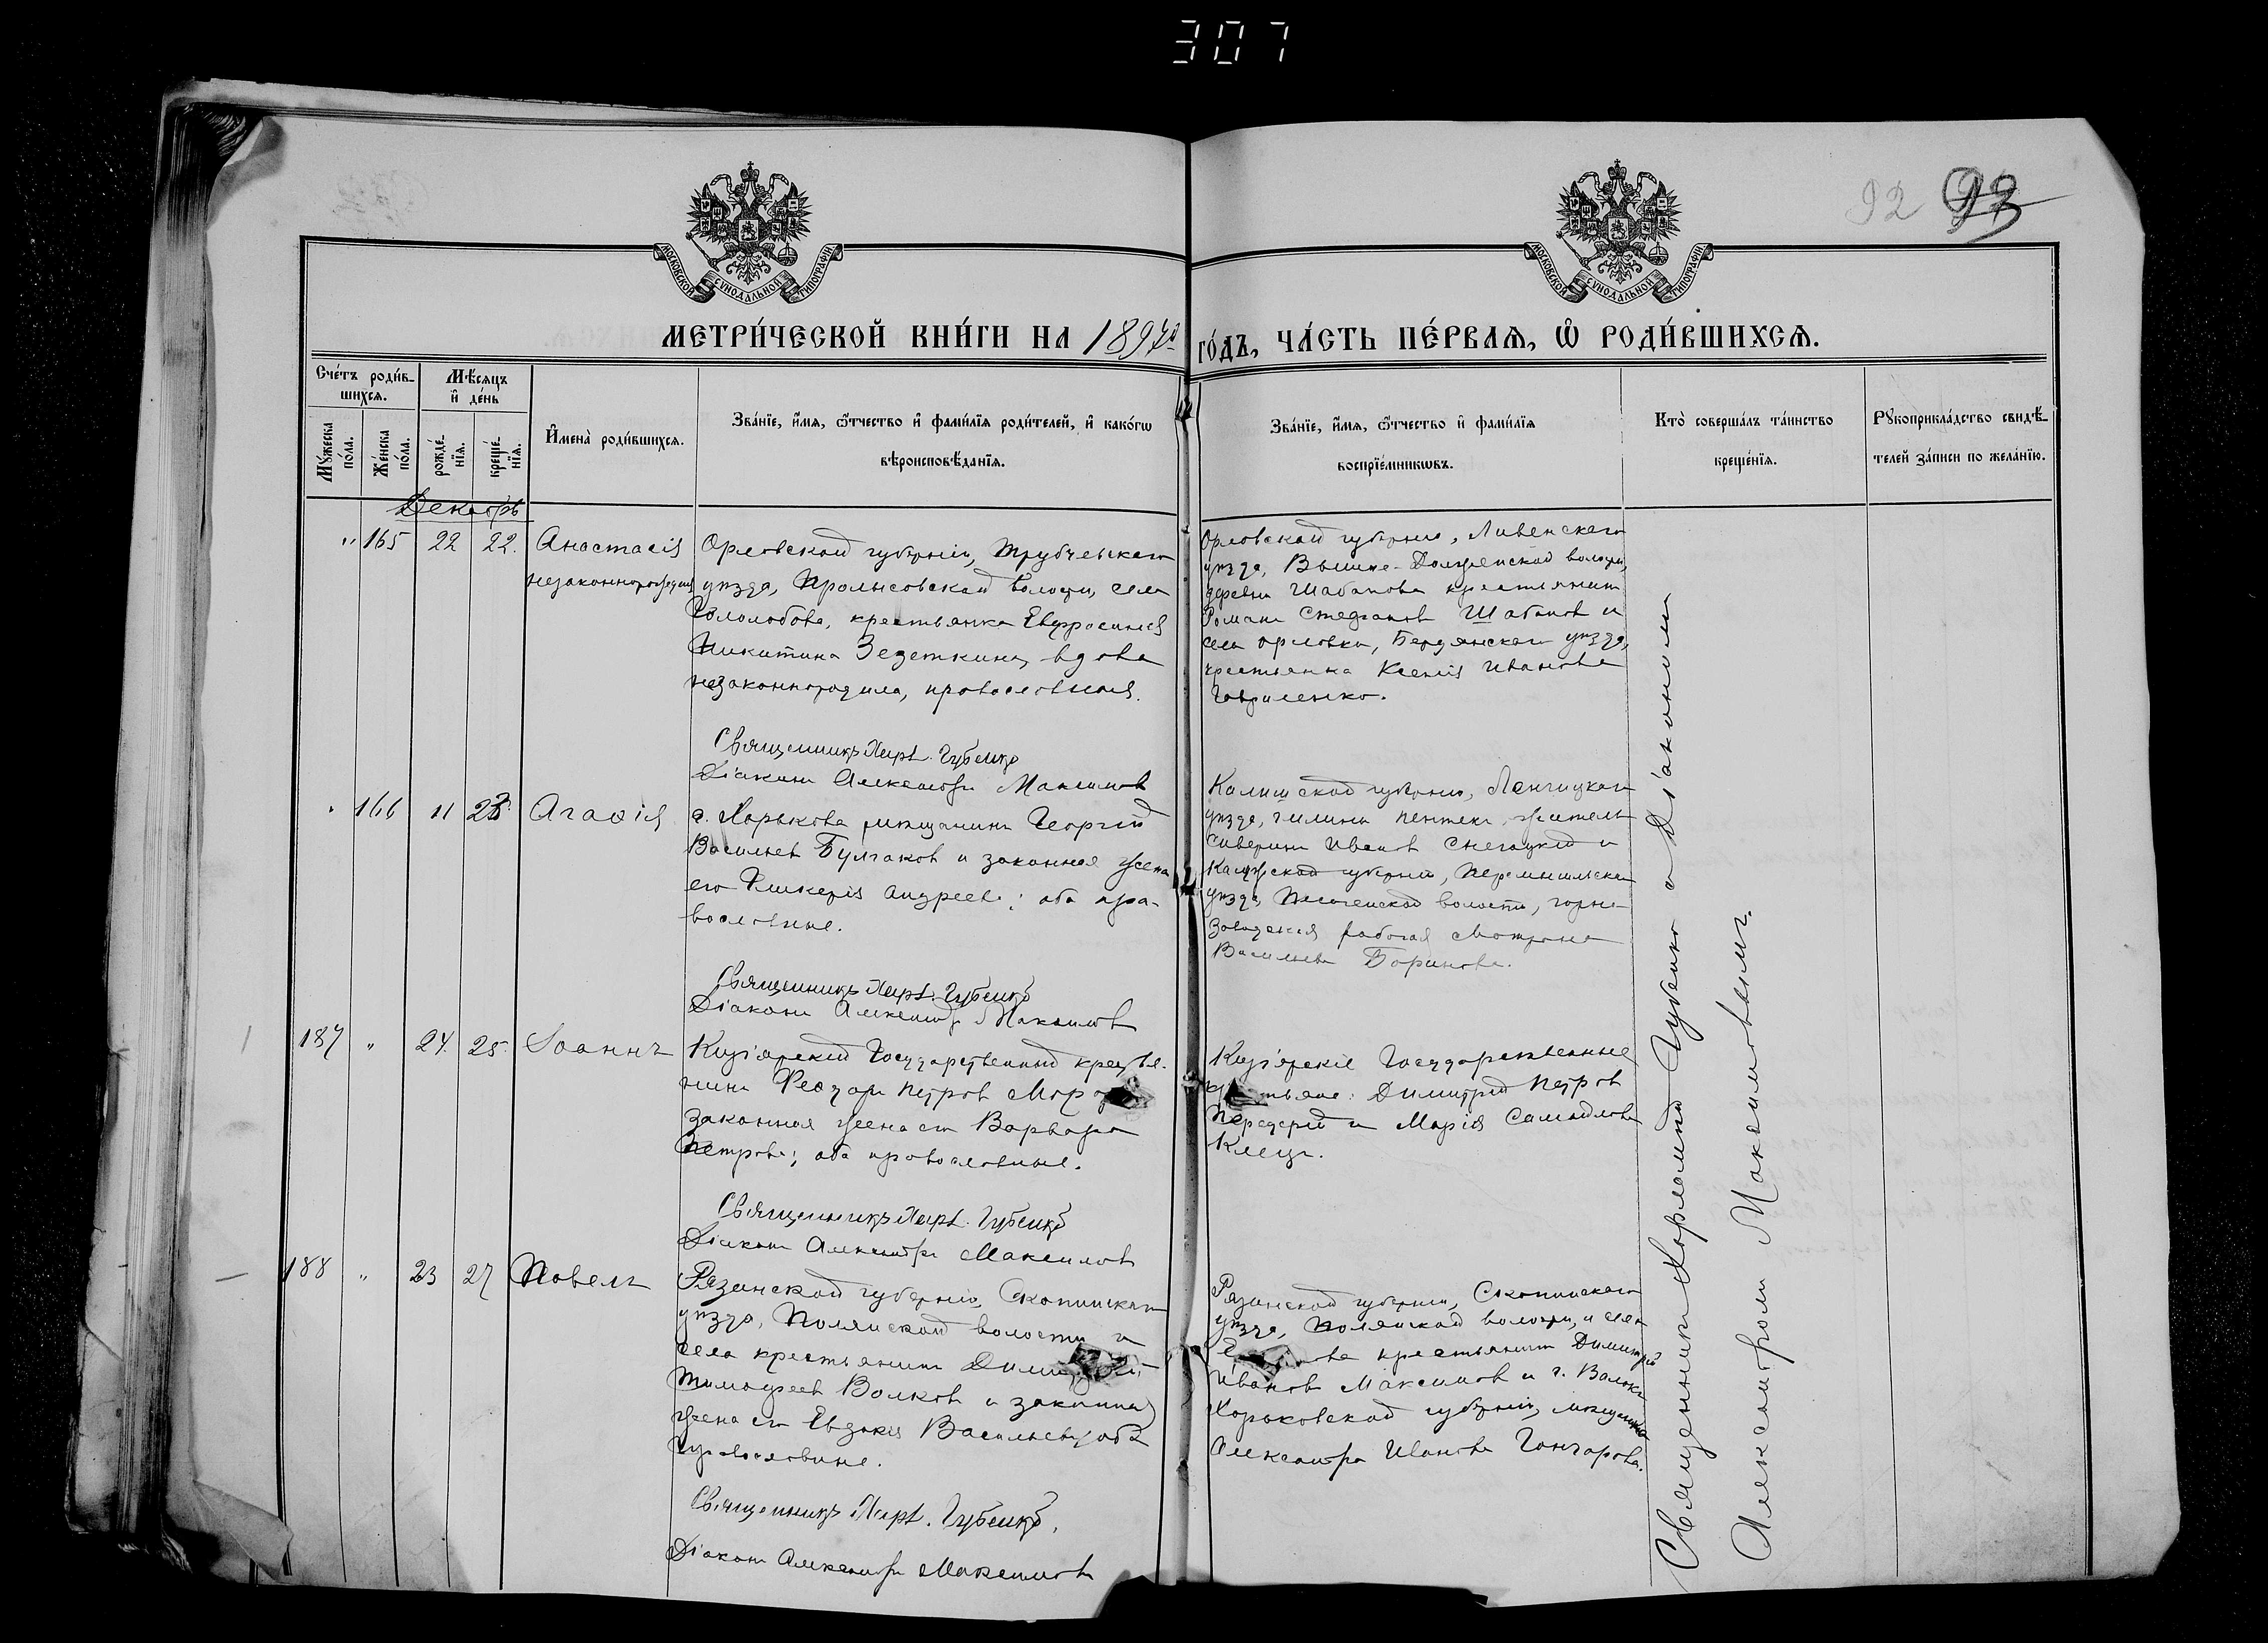 307
92 93
МОСКОВСКОЙ СѴНОДАЛЬНОЙ ТИПОГРАФІИ
МОСКОВСКОЙ СѴНОДАЛЬНОЙ ТИПОГРАФІИ
МЕТРИ́ЧЕСКОЙ КНИ́ГИ НА 1897й ГО́ДЪ, ЧА́СТЬ ПЕ́РВАѦ, Ѿ РОДИ́ВШИХСѦ.
Сче́тъ роди́в-
шихсѧ.
Мꙋ́жеска
по́ла.
Же́нска
по́ла.
Мѣ́сѧцъ
и҆ де́нь
рожде́-
нїѧ.
креще́-
нїѧ.
И҆мена̀ роди́вшихсѧ.
Зва́нїе, и҆́мѧ, ѻ҆́тчество и҆ фами́лїѧ роди́телей, и҆ како́гѡ
вѣроисповѣ́данїѧ.
Зва́нїе, и҆́мѧ, ѻ҆́тчество и҆ фами́лїѧ
воспрїе́мникѡвъ.
Кто̀ соверша́лъ та́инство
креще́нїѧ.
Рꙋкоприкла́дство свидѣ́-
телей за́писи по жела́нїю.
Декабрь
" 165 22 22. Анастасія
незаконнорожденная
Орловской губерніи, Трубчевскаго
уѣзда, Пролысовской волости, села
Гололобова, крестьянка Евфросинія
Никитина Зедеткина, вдова
незаконнородила, православная.
Священникъ Харл. Губенко
Діаконъ Александръ Максимовъ
Орловской губерніи, Ливенскаго
уѣзда, Вышне-Должанской волости,
деревни Шабанова крестьянинъ
Романъ Стефановъ Шабановъ и
села Орловки, Бердянскаго уѣзда,
крестьянка Ксенія Иванова
Гавриленко.
" 166 11 23. Агаѳія
г. Харькова мѣщанинъ Георгій
Васильевъ Булгаковъ и законная жена
его Гликерія Андреева; оба пра-
вославные.
Священникъ Харл. Губенко
Діаконъ Александръ Максимовъ
Калишской губерніи, Ленчицкаго
уѣзда, гмины житель
Северинъ Ивановъ и
Калужской губерніи, Перемышльскаго
уѣзда, волости, горно-
заводская работая Мотрона
Васильева Баринова.
187 " 24. 25. Іоаннъ
Кизіярскій Государственный крестья-
нинъ Ѳеодоръ Петровъ
законная жена его Варвара
Петрова; оба православные.
Священникъ Харл. Губенко
Діаконъ Александръ Максимовъ
Кизіярскіе Государственные
крестьяне: Димитрій Петровъ
Передерій и Марія Самойлова
Клецъ.
188 " 23 27 Павелъ
Рязанской губерніи, Скопинскаго
уѣзда, Полянской волости и
села крестьянинъ Димитрій
Тимофеевъ Волковъ и законная
жена его Евдокія Васильева; оба
православные.
Священникъ Харл. Губенко.
Діаконъ Александръ Максимовъ
Рязанской губерніи, Скопинскаго
уѣзда, Полянской волости, и села
крестьянинъ Димитрій
Ивановъ Максимовъ и г. Валокъ
Харьковской губерніи, мѣщанка
Александра Иванова Гончарова.
Священникъ Харлампій Губенко с Діакономъ
Александромъ Максимовымъ.